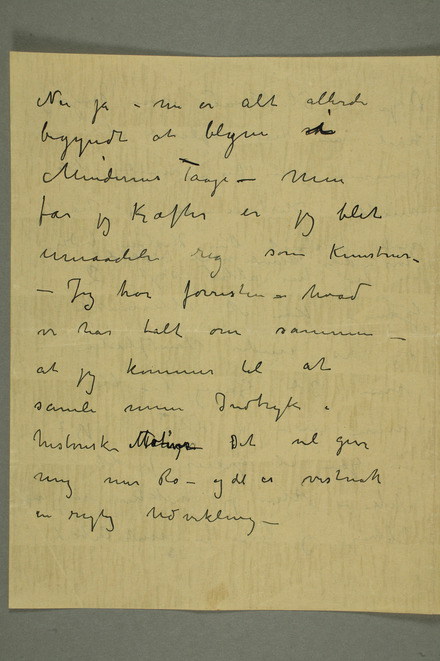 Nu ja – nu er alt allerede
begyndt at blegne i
Mindernes Taage – Men
faar jeg Kræfter er jeg blet
umaadelig rig som Kunstner –
– Jeg tror forresten – hvad
vi har talt om sammen –
at jeg kommer til at
samle mine Indtryk i
historiske Motiver Det vil give
mig mer Ro – og det er vistnok
en rigtig Udvikling –